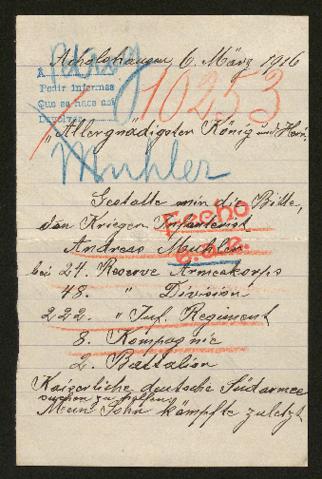 Acholshausen, 6. März 1916
A
Pedir informes
Que se hace así
Devolver
10253
"Allergnädigster König und Herr.
Muhler
Gestatte mir die Bitte,
den Krieger Infanterist
Fecho
Andreas Muhler
bei 24. Reserve Armeekorps
48. " Division
222. " Inf. Regiment
8. Kompagnie
2. Battalion
Kaiserliche deutsche Südarmee
suchen zu
Mein Sohn kämpfte zuletzt